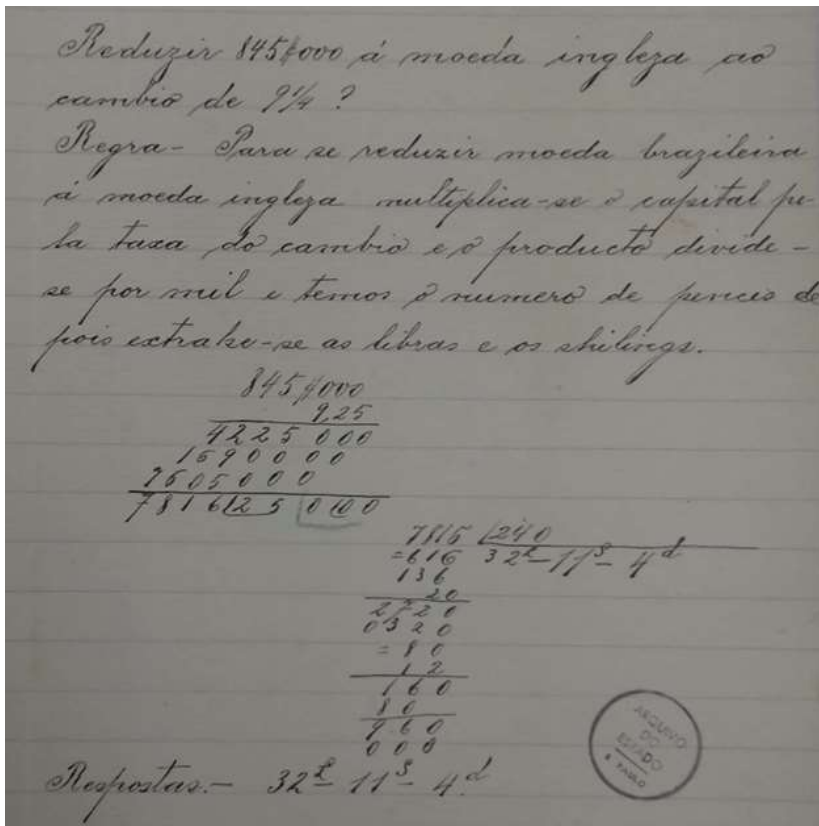 Reduzir 845$000 á moeda ingleza ao
cambio de 9 1/4 ?
Regra - Para se reduzir moeda brazileira
á moeda ingleza multiplica-se o capital pe-
la taxa do cambio e o producto divide-
se por mil e temos o numero de pences de
pois extrahe-se as libras e os shilings.
845$000
9,25
4225 000
1690000
7605000
7816125000
7816 240
=616 32£-11s-4d
136
20
2720
0320
=80
12
160
80
960
000
Respostas.- 32£ 11s- 4d
ARQUIVO
DO
ESTADO
S. PAULO